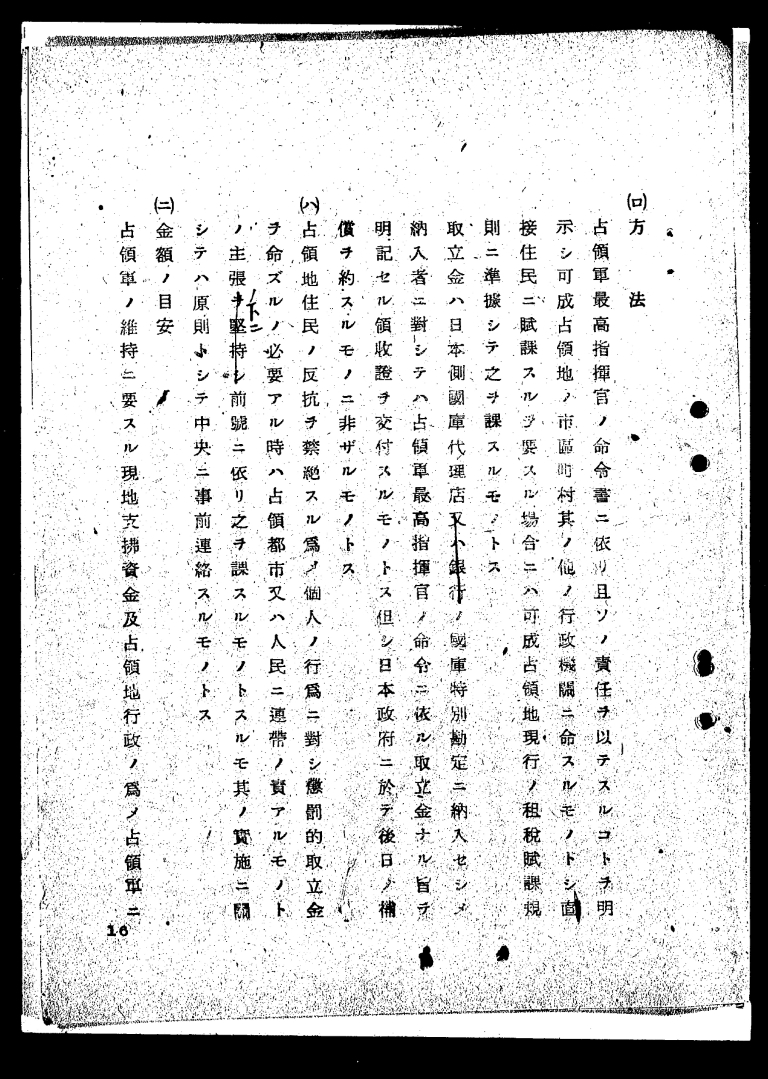 (ロ)方法
占領軍最高指揮官ノ命令書ニ依リ且ソノ責任ヲ以テスルコトヲ明
示シ可成占領地ノ市區町村其ノ他ノ行政機關ニ命スルモノトシ直
接住民ニ賦課スルヲ要スル場合ニハ可成占領地現行ノ租稅賦課規
則ニ準據シテ之ヲ課スルモノトス
取立金ハ日本側國庫代理店又ハ銀行ノ國庫特別勘定ニ納入セシメ
納入者ニ對シテハ占領軍最高指揮官ノ命令ニ依ル取立金ナル旨ヲ
明記セル領收證ヲ交付スルモノトス但シ日本政府ニ於テ後日ノ補
償ヲ約スルモノニ非ザルモノトス
(ハ)占領地住民ノ反抗ヲ禁絕スル爲メ個人ノ行爲ニ對シ懲罰的取立金
ヲ命ズルノ必要アル時ハ占領都市又ハ人民ニ連帶ノ責アルモノト
ノ主張ヲ堅持シ前號ニ依リ之ヲ課スルモノトスルモ其ノ實施ニ關
ノ下ニ
シテハ原則トシテ中央ニ事前連絡スルモノトス
(ニ)金額ノ目安
占領軍ノ維持ニ要スル現地支拂資金及占領地行政ノ爲メ占領軍ニ
16